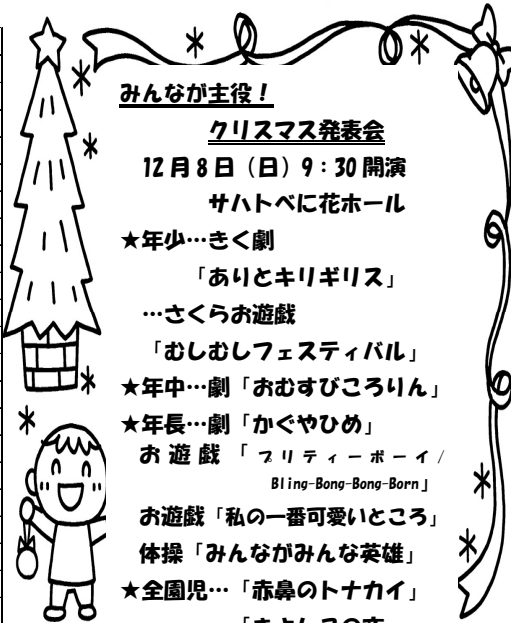 みんなが主役！
クリスマス発表会
12月8日（日）9：30開演
サハトべに花ホール
★年少…きく劇
「ありとキリギリス」
…さくらお遊戯
「むしむしフェスティバル」
★年中…劇「おむすびころりん」
★年長…劇「かぐやひめ」
お遊戯「プリティーボーイ/
Bling-Bong-Bong-Born」
お遊戯「私の一番可愛いところ」
体操「みんながみんな英雄」
★全園児…「赤鼻のトナカイ」